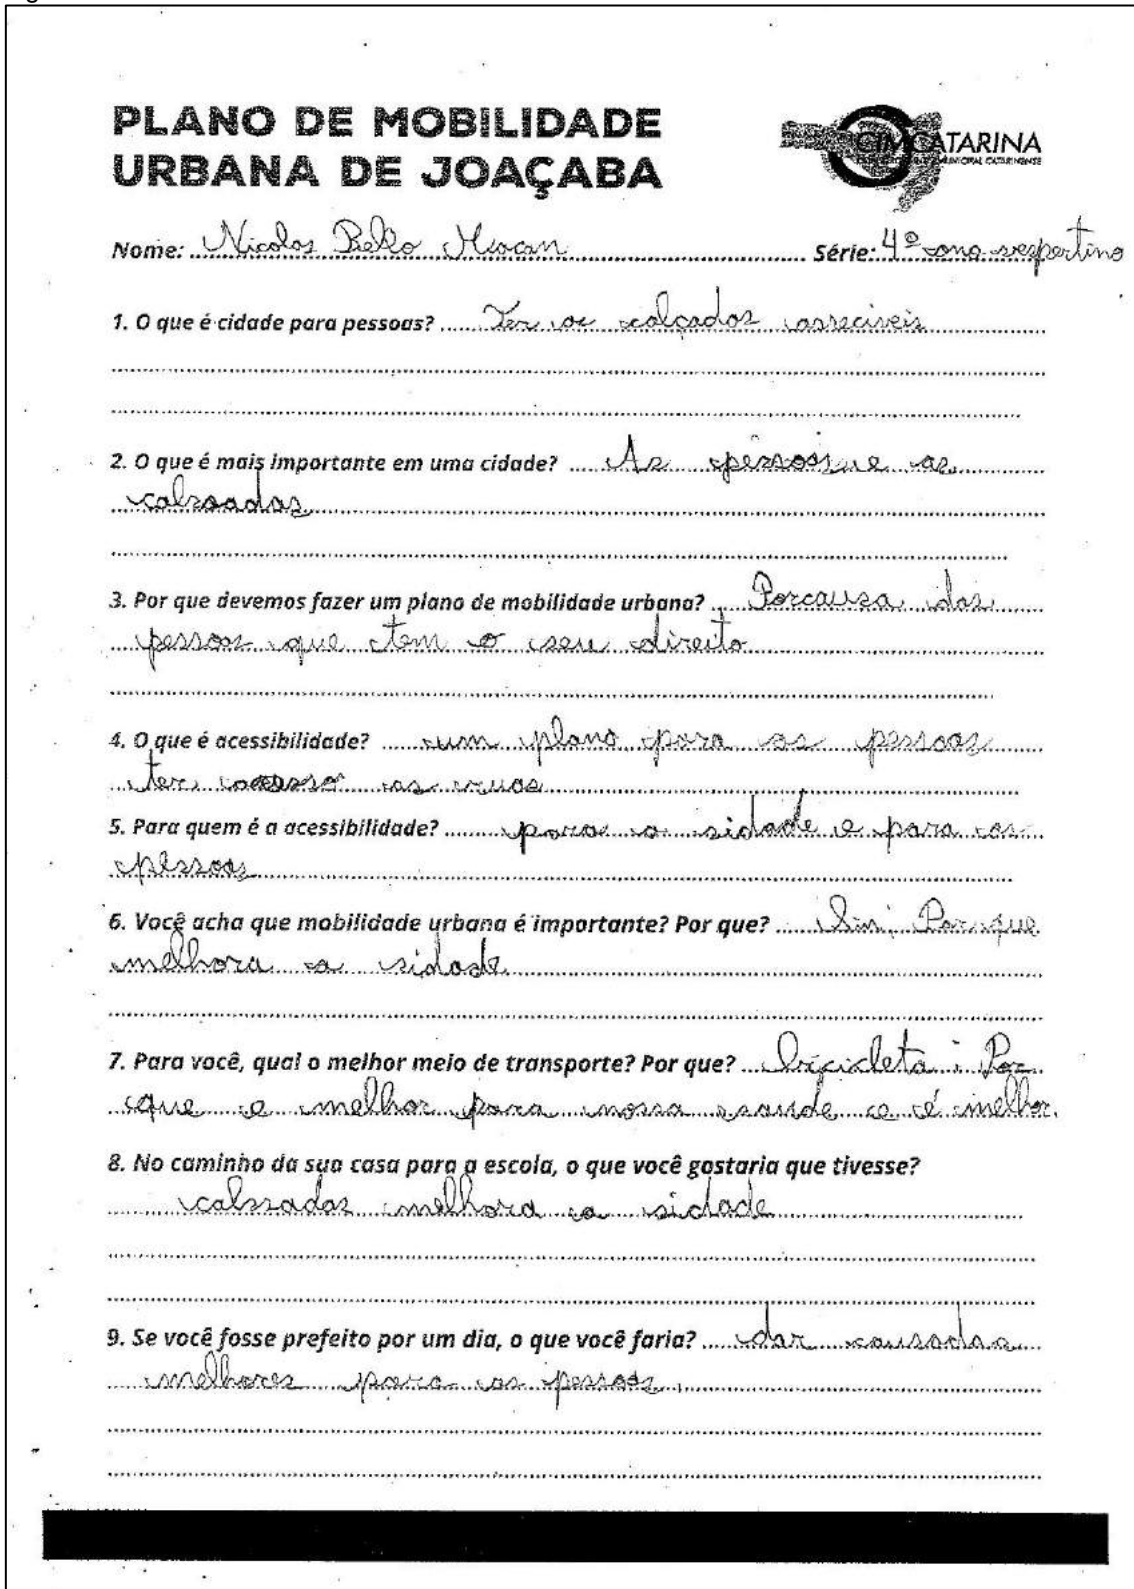 PLANO DE MOBILIDADE
URBANA DE JOAÇABA
CIMCATARINA
Nome: Nicolas Série: 4º ano vespertino
1. O que é cidade para pessoas? Ter as calçadas
2. O que é mais importante em uma cidade? As pessoas e as
calsadas
3. Por que devemos fazer um plano de mobilidade urbana? Porcausa das
pessoas que tem o seu direito
4. O que é acessibilidade? um plano para as pessoas
ter as ruas
5. Para quem é a acessibilidade? para a sidade e para as
pessoas
6. Você acha que mobilidade urbana é importante? Por que? Sim, Por que
melhora a sidade
7. Para você, qual o melhor meio de transporte? Por que? bicicleta; Por
que e melhor para nossa saude e é melhor.
8. No caminho da sua casa para a escola, o que você gostaria que tivesse?
calssadas melhora a sidade
9. Se você fosse prefeito por um dia, o que você faria? dar
melhores para as pessoas